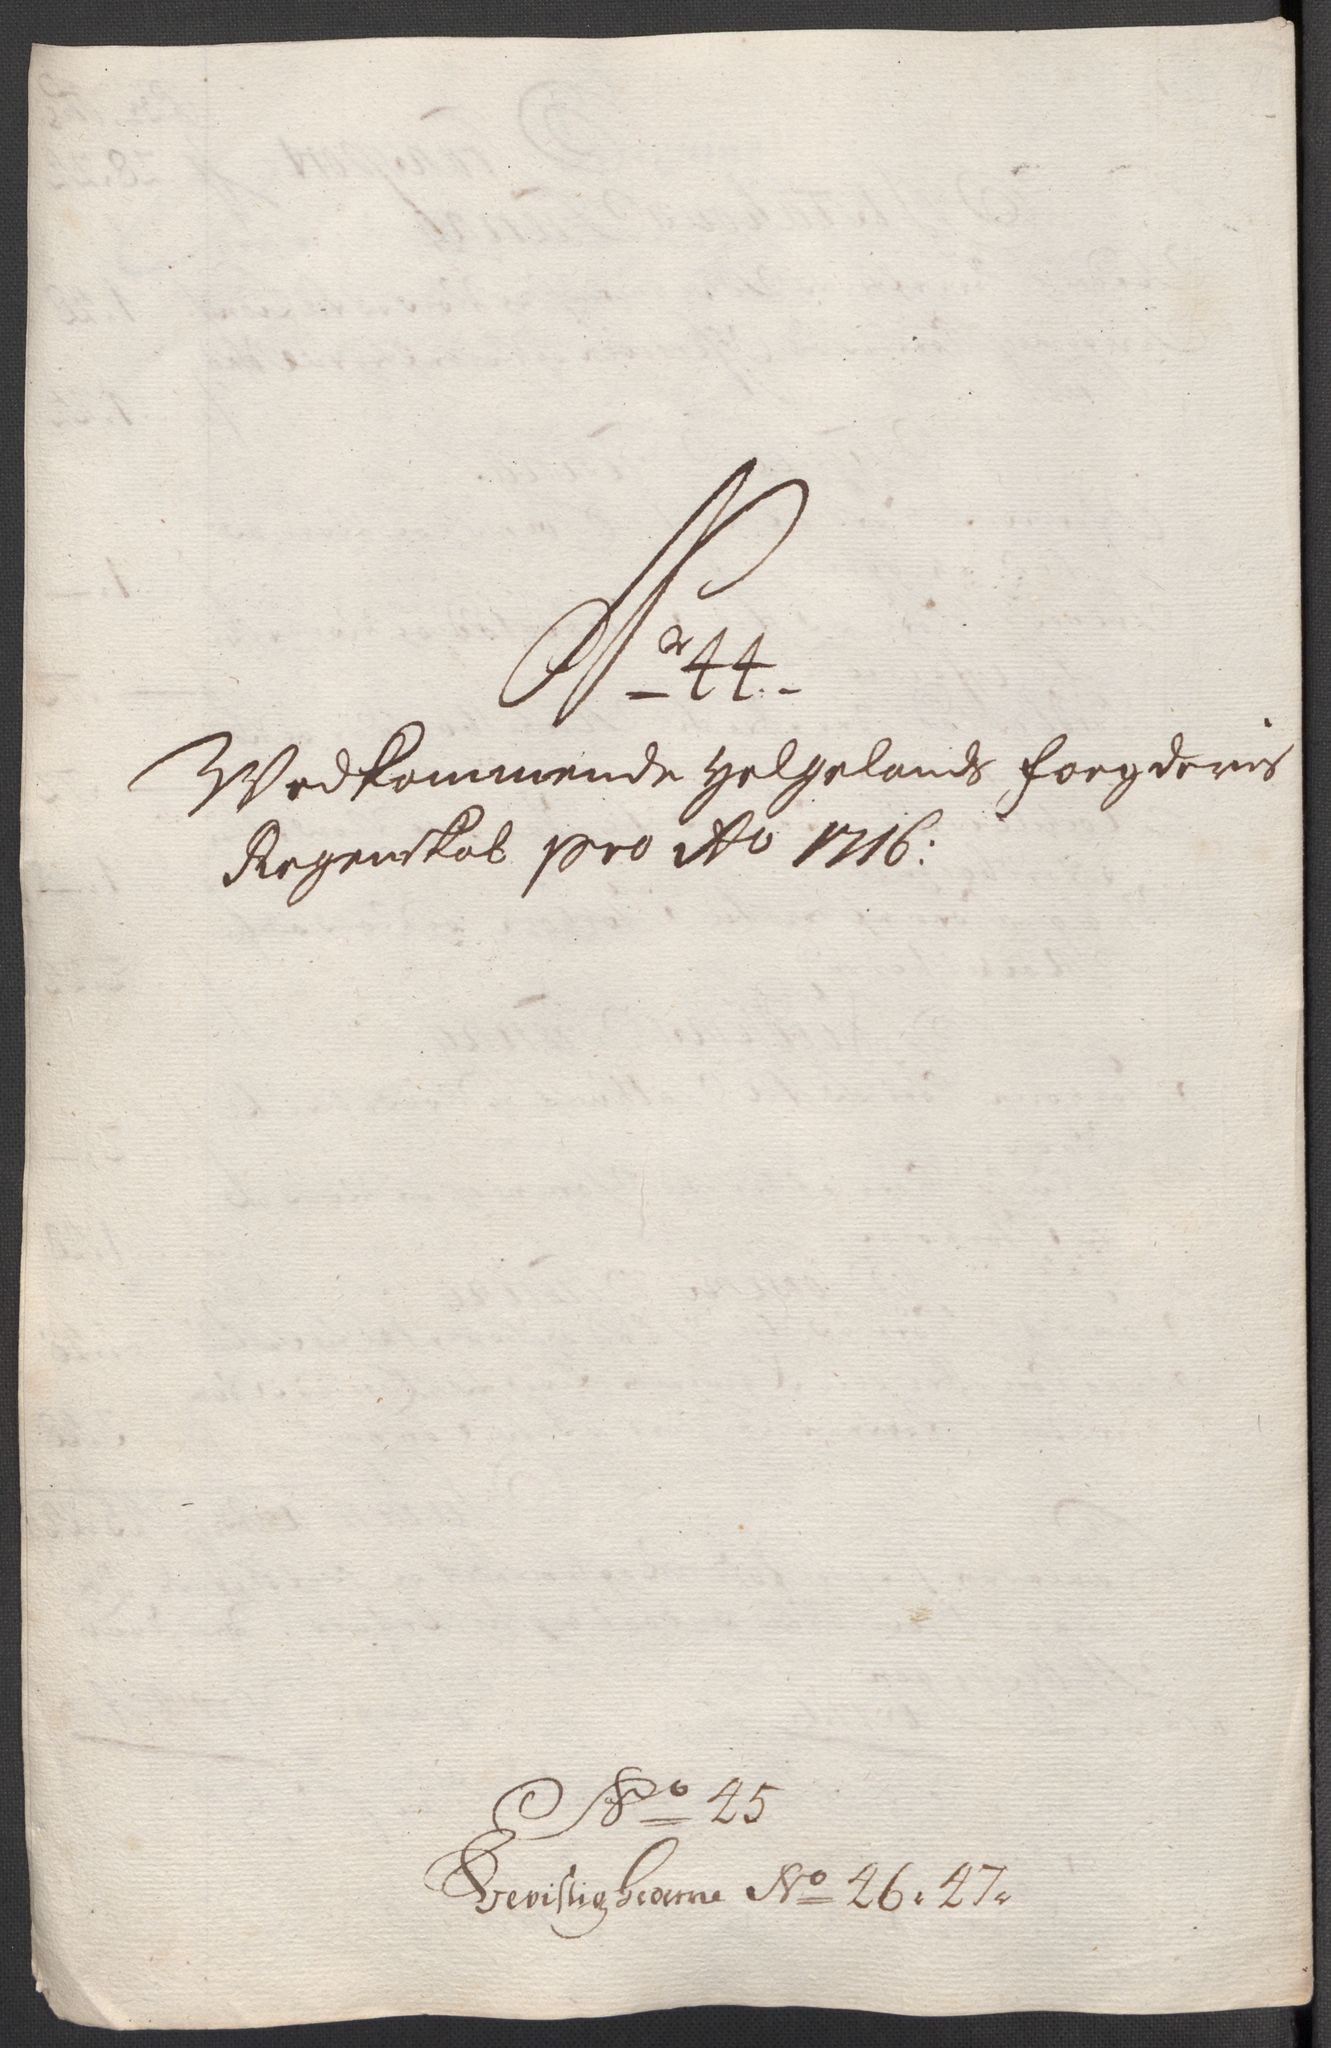 Nr 44.
Vedkommende Helgelands Foegderies
Regenskab pro Ao 1716:
No 45
Bevislighederne No 46. 47.